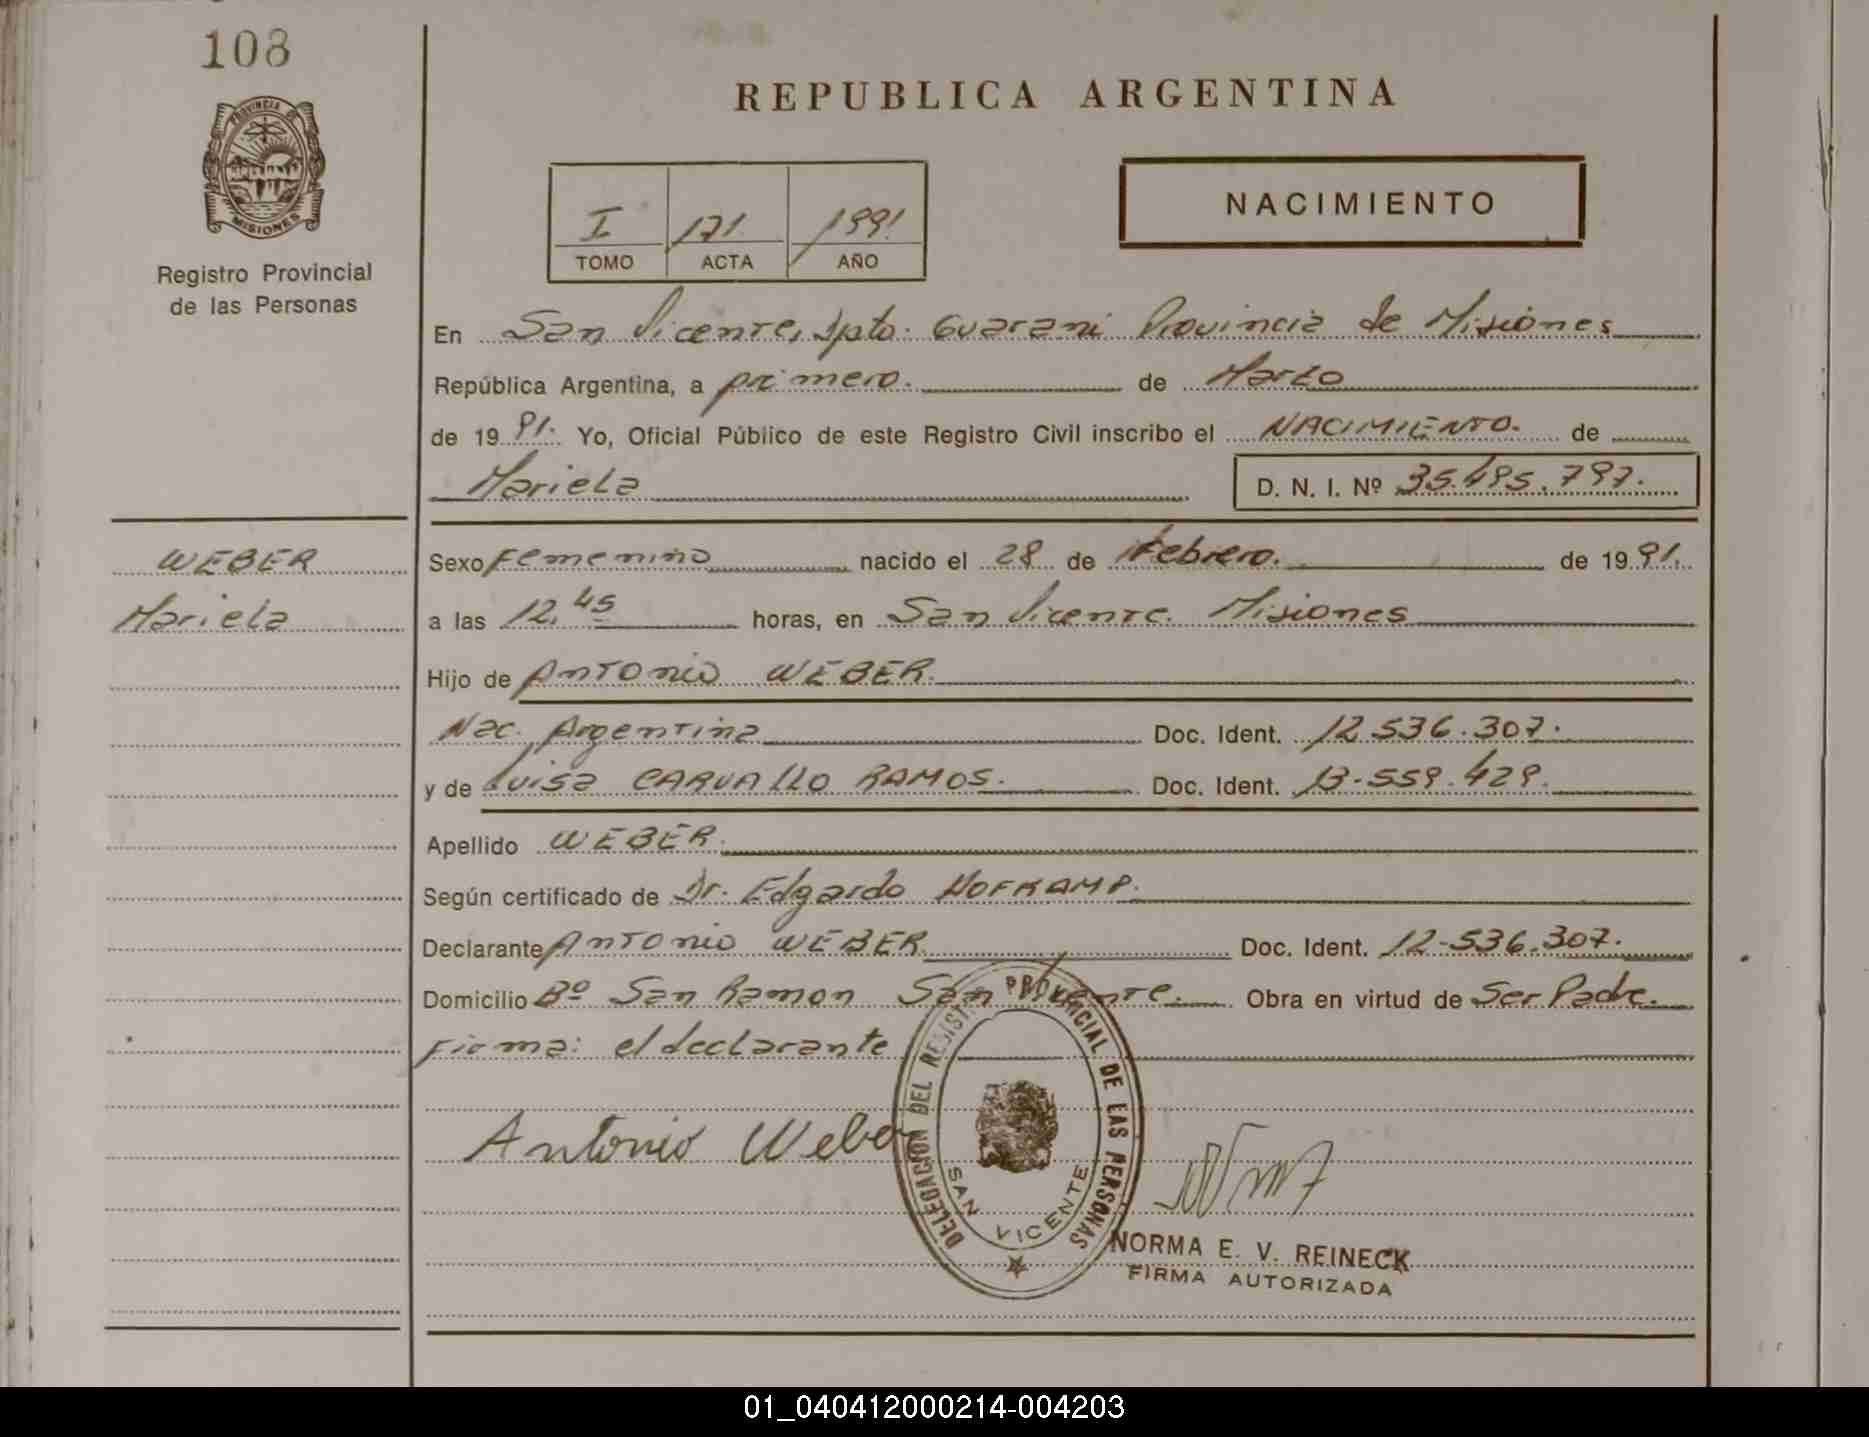 108
PROVINCIA DE
MISIONES
Registro Provincial
de las Personas
REPUBLICA ARGENTINA
I 171 1991
TOMO ACTA AÑO
NACIMIENTO
En San Vicente, Dpto. Guarani Provincia de Misiones
República Argentina, a primero. de Marzo
de 1991. Yo, Oficial Público de este Registro Civil inscribo el NACIMIENTO. de
Mariela D. N. I. Nº 35.495.797.
WEBER
Mariela
Sexo Femenino nacido el 28 de Febrero. de 1991.
a las 12,45 horas, en San Vicente. Misiones
Hijo de Antonio WEBER.
Nac. Argentina Doc. Ident. 12.536.307.
y de Luisa CARVALLO RAMOS. Doc. Ident. 13.559.429.
Apellido WEBER.
Según certificado de Dr. Edgardo HOFKAMP.
Declarante Antonio WEBER. Doc. Ident. 12.536.307.
Domicilio Bº San Ramon San Vicente. Obra en virtud de Ser Padre.
Firma: el declarante
Antonio Weber
DELEGACION DEL REGISTRO PROVINCIAL DE LAS PERSONAS
SAN VICENTE
NORMA E. V. REINECK
FIRMA AUTORIZADA
01_040412000214-004203